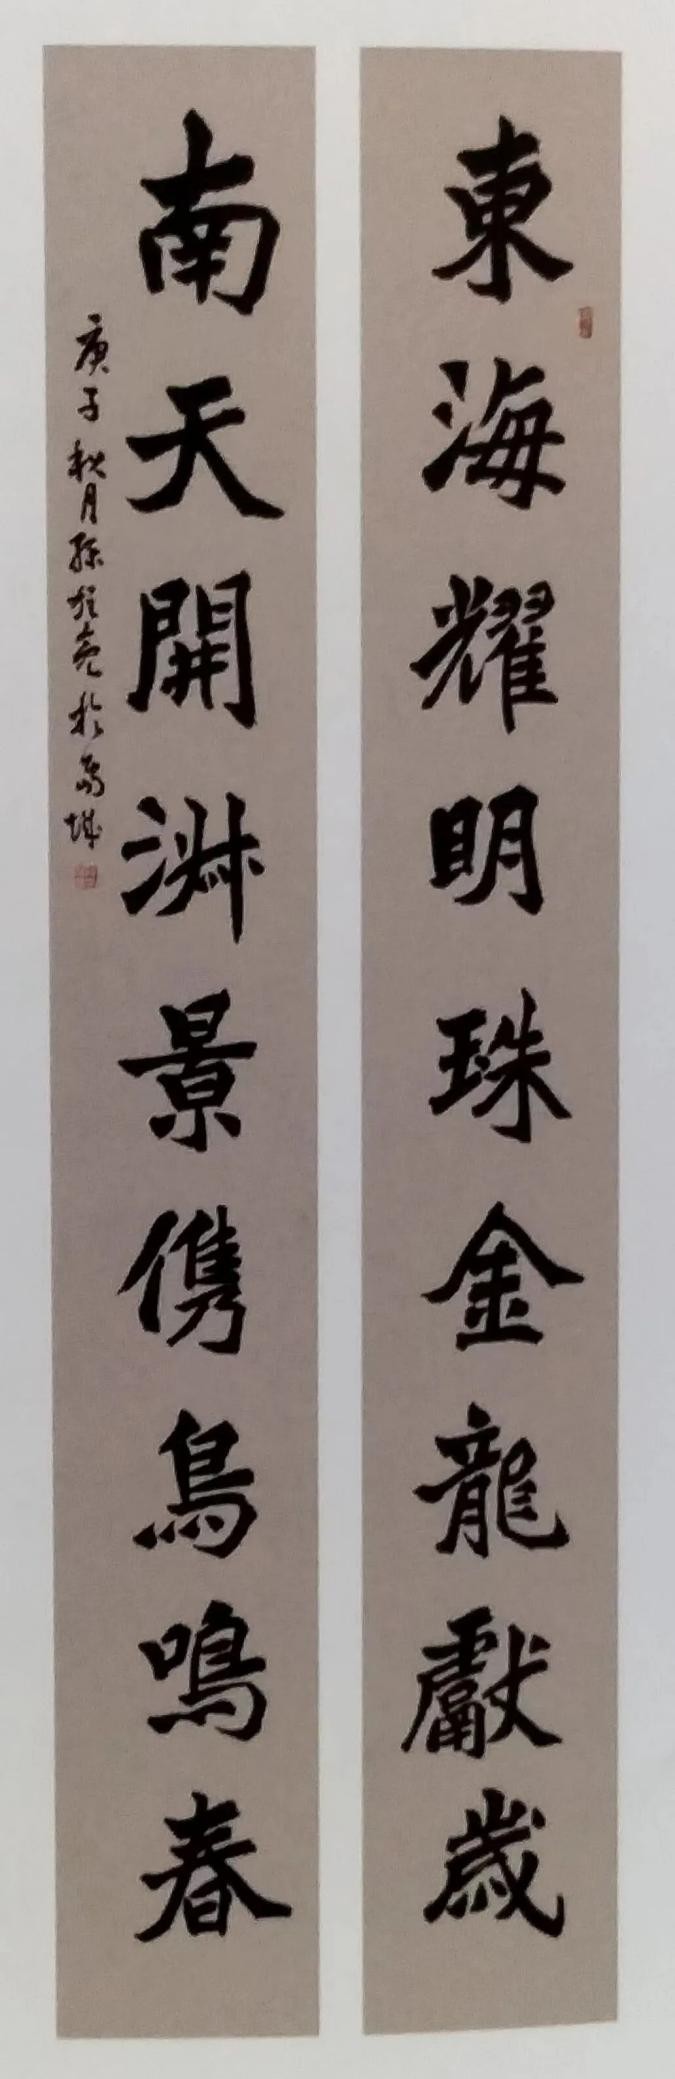 東海耀明珠金龍獻歲
南天開淋景儁鳥鳴春
庚子秋月孫
於禹城